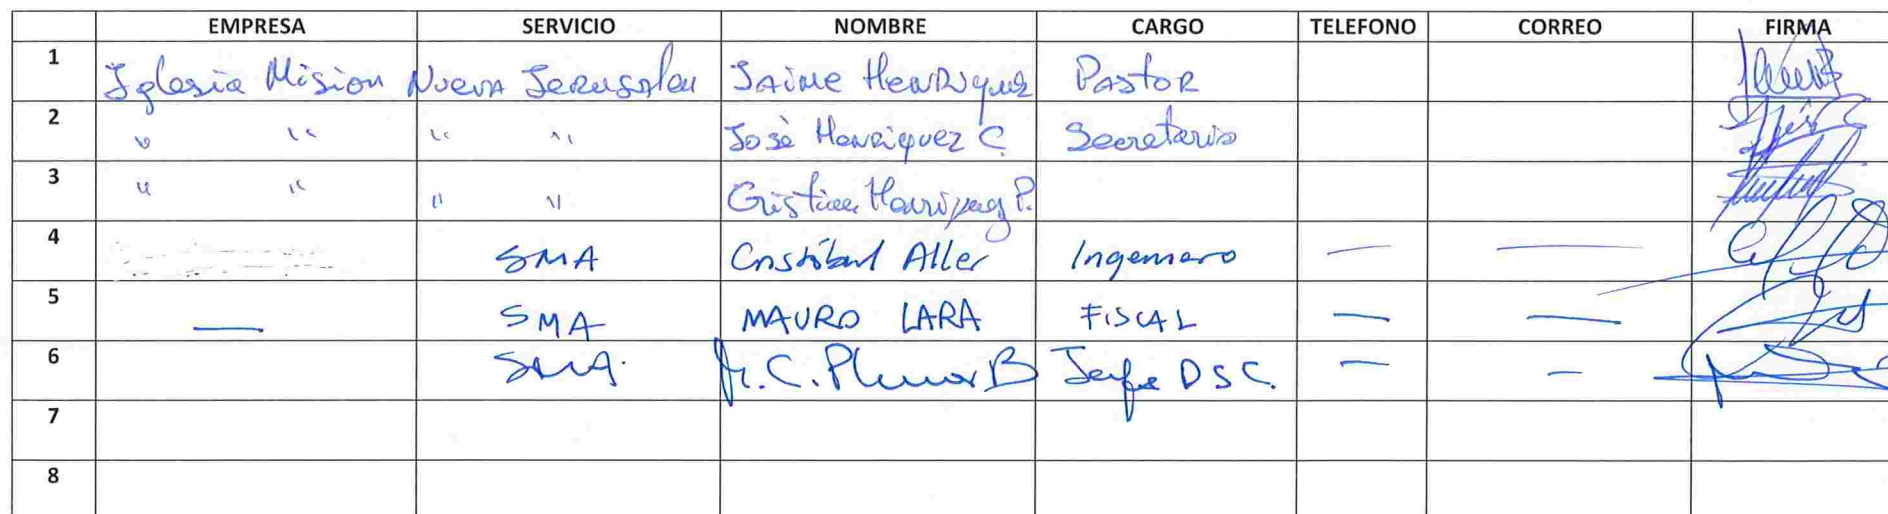 EMPRESA SERVICIO NOMBRE CARGO TELEFONO CORREO FIRMA
1 Iglesia Mision Nueva Jerusalen Jaime Henriquez Pastor
2 " " " " José Henriquez C. Secretario
3 " " " " Cristian Henriquez P.
4 SMA Cristóbal Aller Ingeniero — —
5 — SMA MAURO LARA FISCAL — —
6 SMA. C. B Jefe DSC. — —
7
8